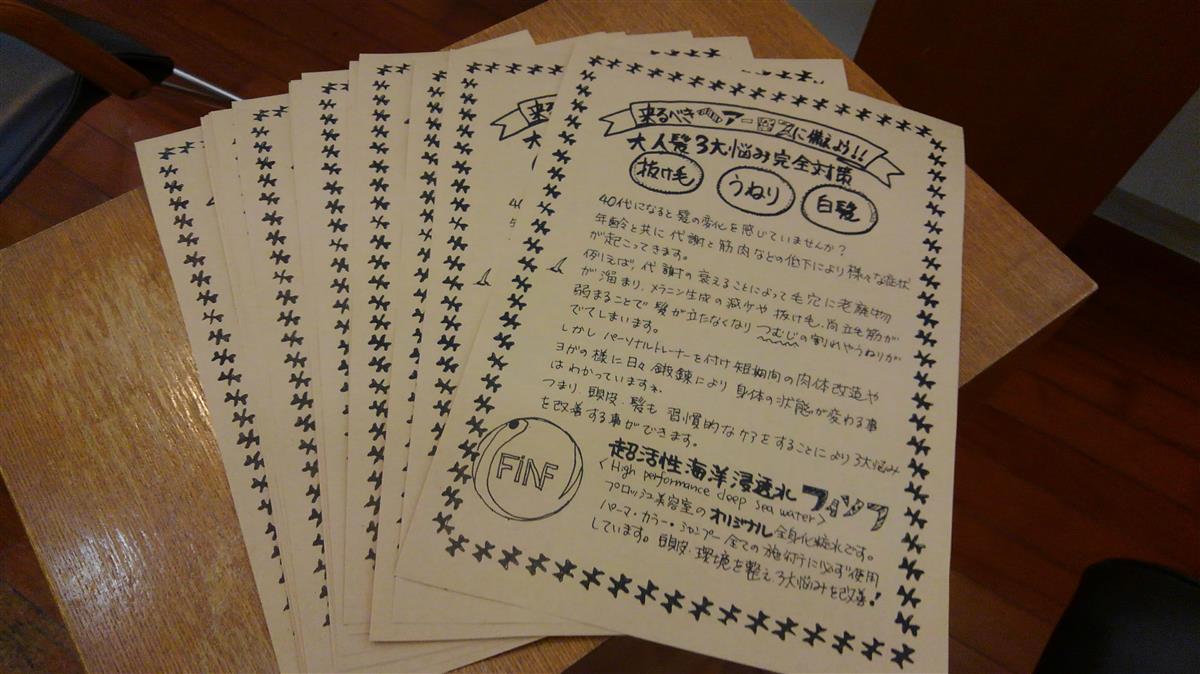 来るべき アー に備えよう!!
大人髪3大悩み完全対策
抜け毛 うねり 白髪
40代になると髪の変化を感じていませんか?
年齢と共に代謝と筋肉などの低下により様々な症状
が起こってきます。
例えば、代謝の衰えることによって毛穴に老廃物
が溜まり、メラニン生成の減少や抜け毛、立毛筋が
弱まることで髪が立たなくなりつむじの割れやうねりが
でてしまいます。
しかしパーソナルトレーナーを付け短期間の肉体改造や
ヨガの様に日々鍛錬により身体の状態が変わる事
はわかっていますネ。
つまり、頭皮、髪も習慣的なケアをすることにより3大悩み
を改善する事ができます。
FiNF
超活性海洋浸透水フィンフ
<High performance deep sea water>
プロッシュ美容室のオリジナル全身化粧水です。
パーマ・カラー・シャンプー全ての施術に必ず使用
しています。頭皮・環境を整え、3大悩みを改善!
来る
大